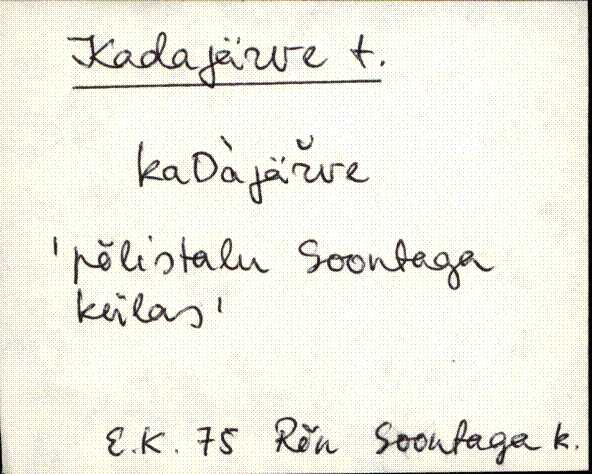 Kadajärve t.
kaDàjär̆ve
'põlistalu Soontaga
külas'
E.K. 75 Rõn Soontaga k.